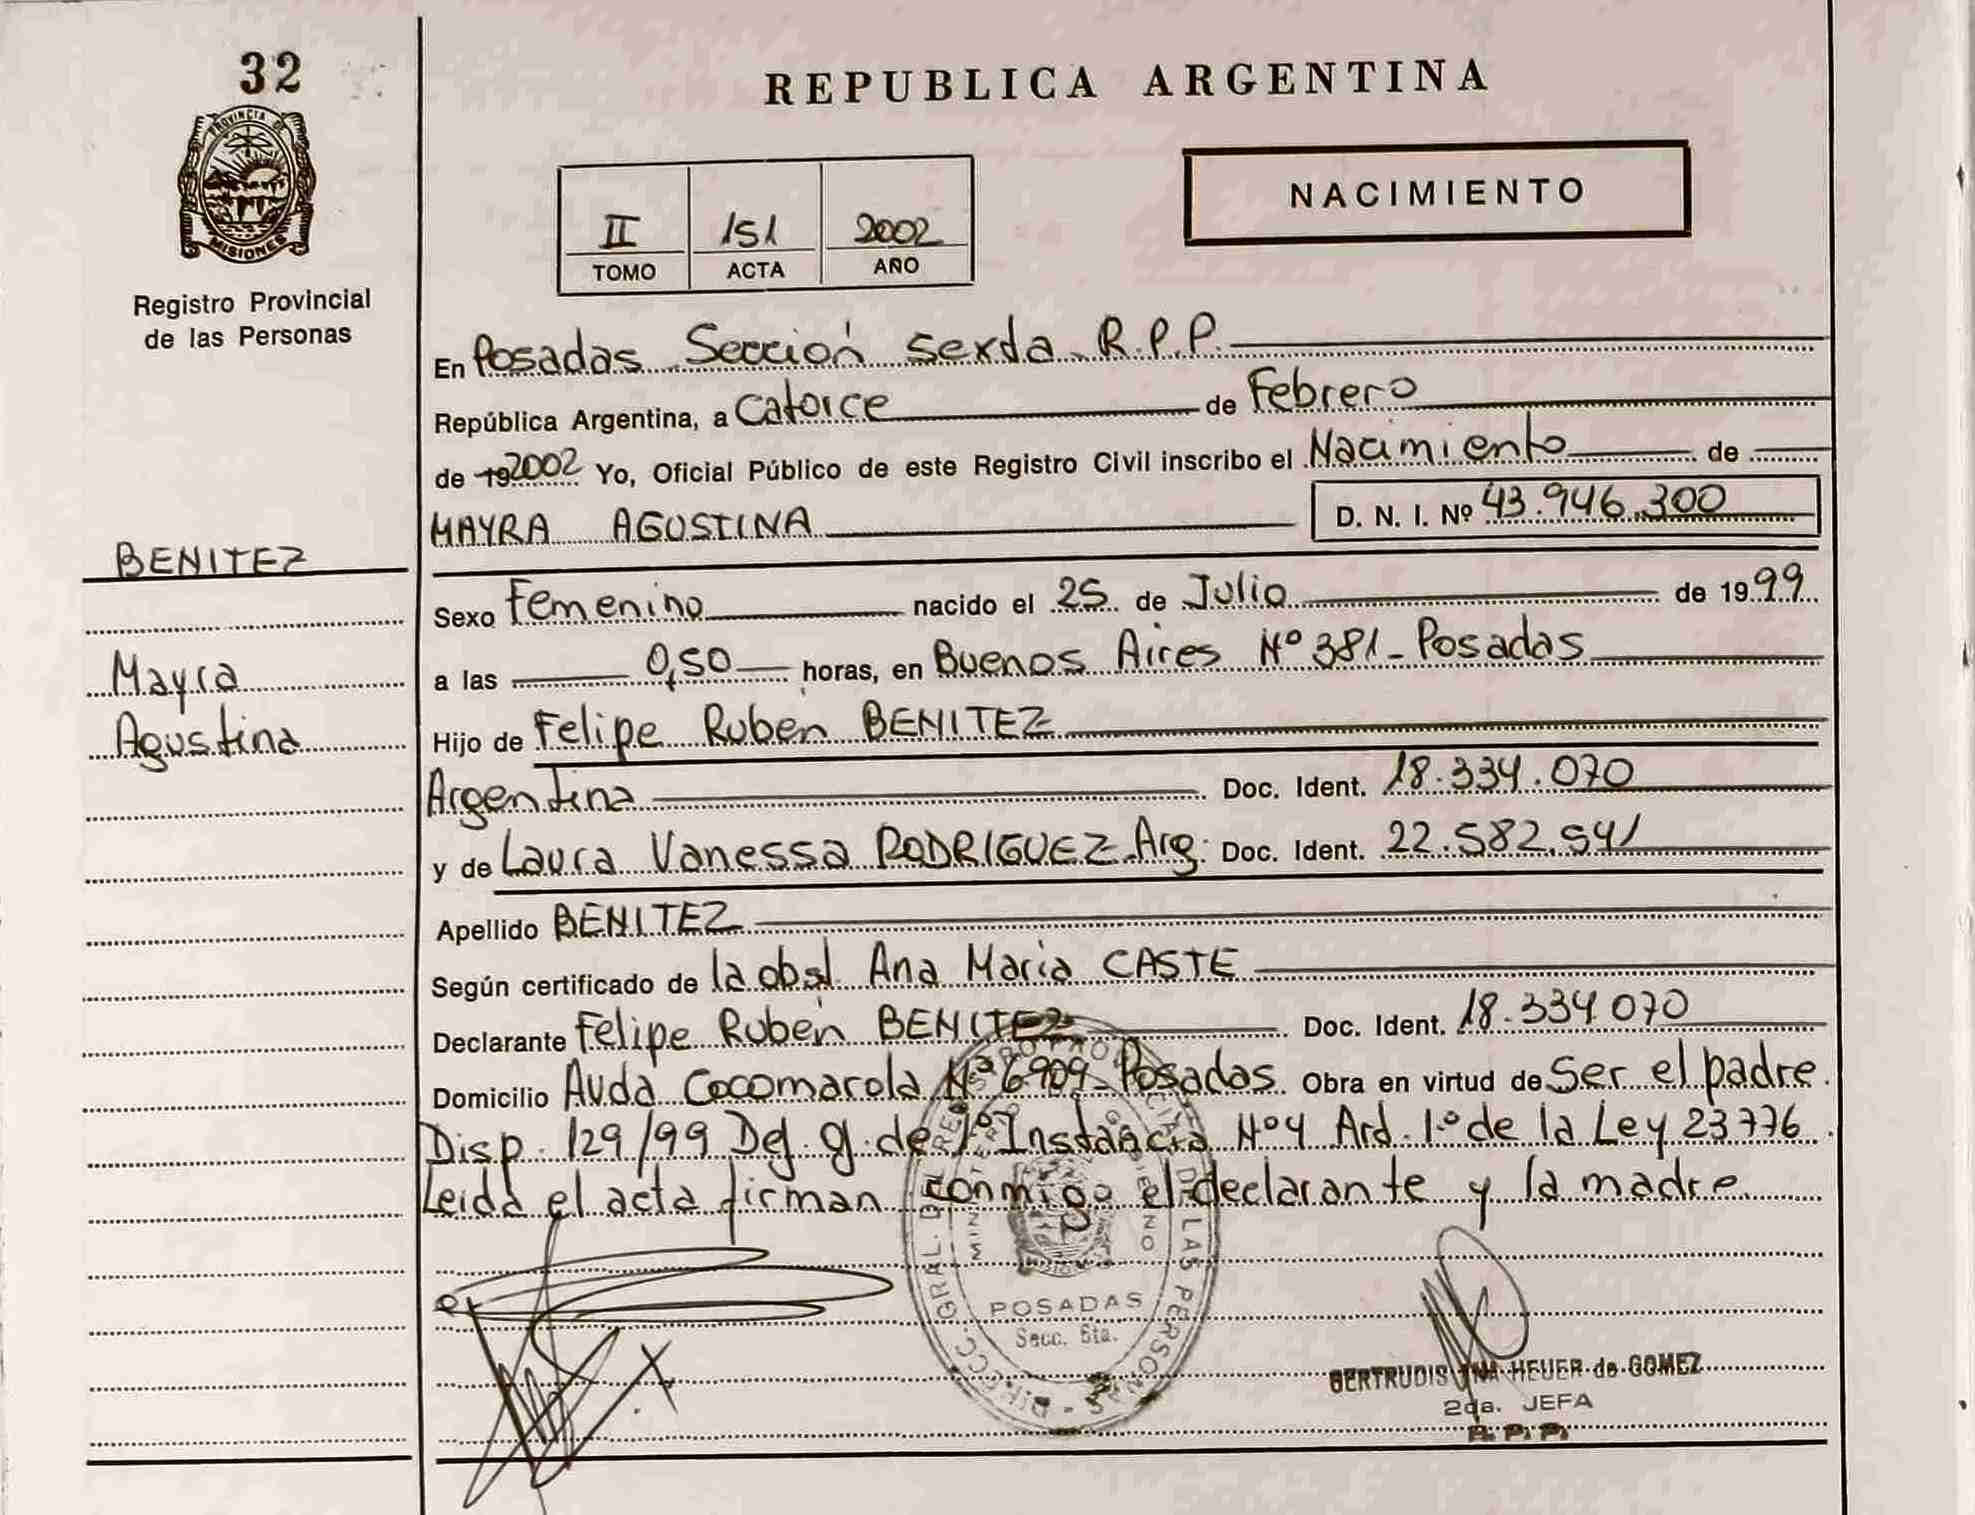 32
PROVINCIA DE
MISIONES
Registro Provincial
de las Personas
REPUBLICA ARGENTINA
NACIMIENTO
II 151 2002
TOMO ACTA AÑO
En Posadas Sección Sexta R.P.P.
República Argentina, a Catorce de Febrero
de 19 2002 Yo, Oficial Público de este Registro Civil inscribo el Nacimiento de
MAYRA AGUSTINA D. N. I. Nº 43.946.300
BENITEZ
Sexo Femenino nacido el 25 de Julio de 1999
Mayra
Agustina
a las 0,50 horas, en Buenos Aires Nº 381 - Posadas
Hijo de Felipe Rubén BENITEZ
Argentina Doc. Ident. 18.334.070
y de Laura Vanessa RODRIGUEZ Arg. Doc. Ident. 22.582.541
Apellido BENITEZ
Según certificado de la obst. Ana Maria CASTE
Declarante Felipe Rubén BENITEZ Doc. Ident. 18.334 070
Domicilio Avda Cocomarola Nº 6909 - Posadas Obra en virtud de Ser el padre.
Disp. 129/99 Def. g. de 1º Instancia Nº 4 Ard. 1º de la Ley 23776.
Leida el acta firman conmigo el declarante y la madre
POSADAS
Secc. 6ta.
GERTRUDIS HEUER de GOMEZ
2da. JEFA
R. P. P.